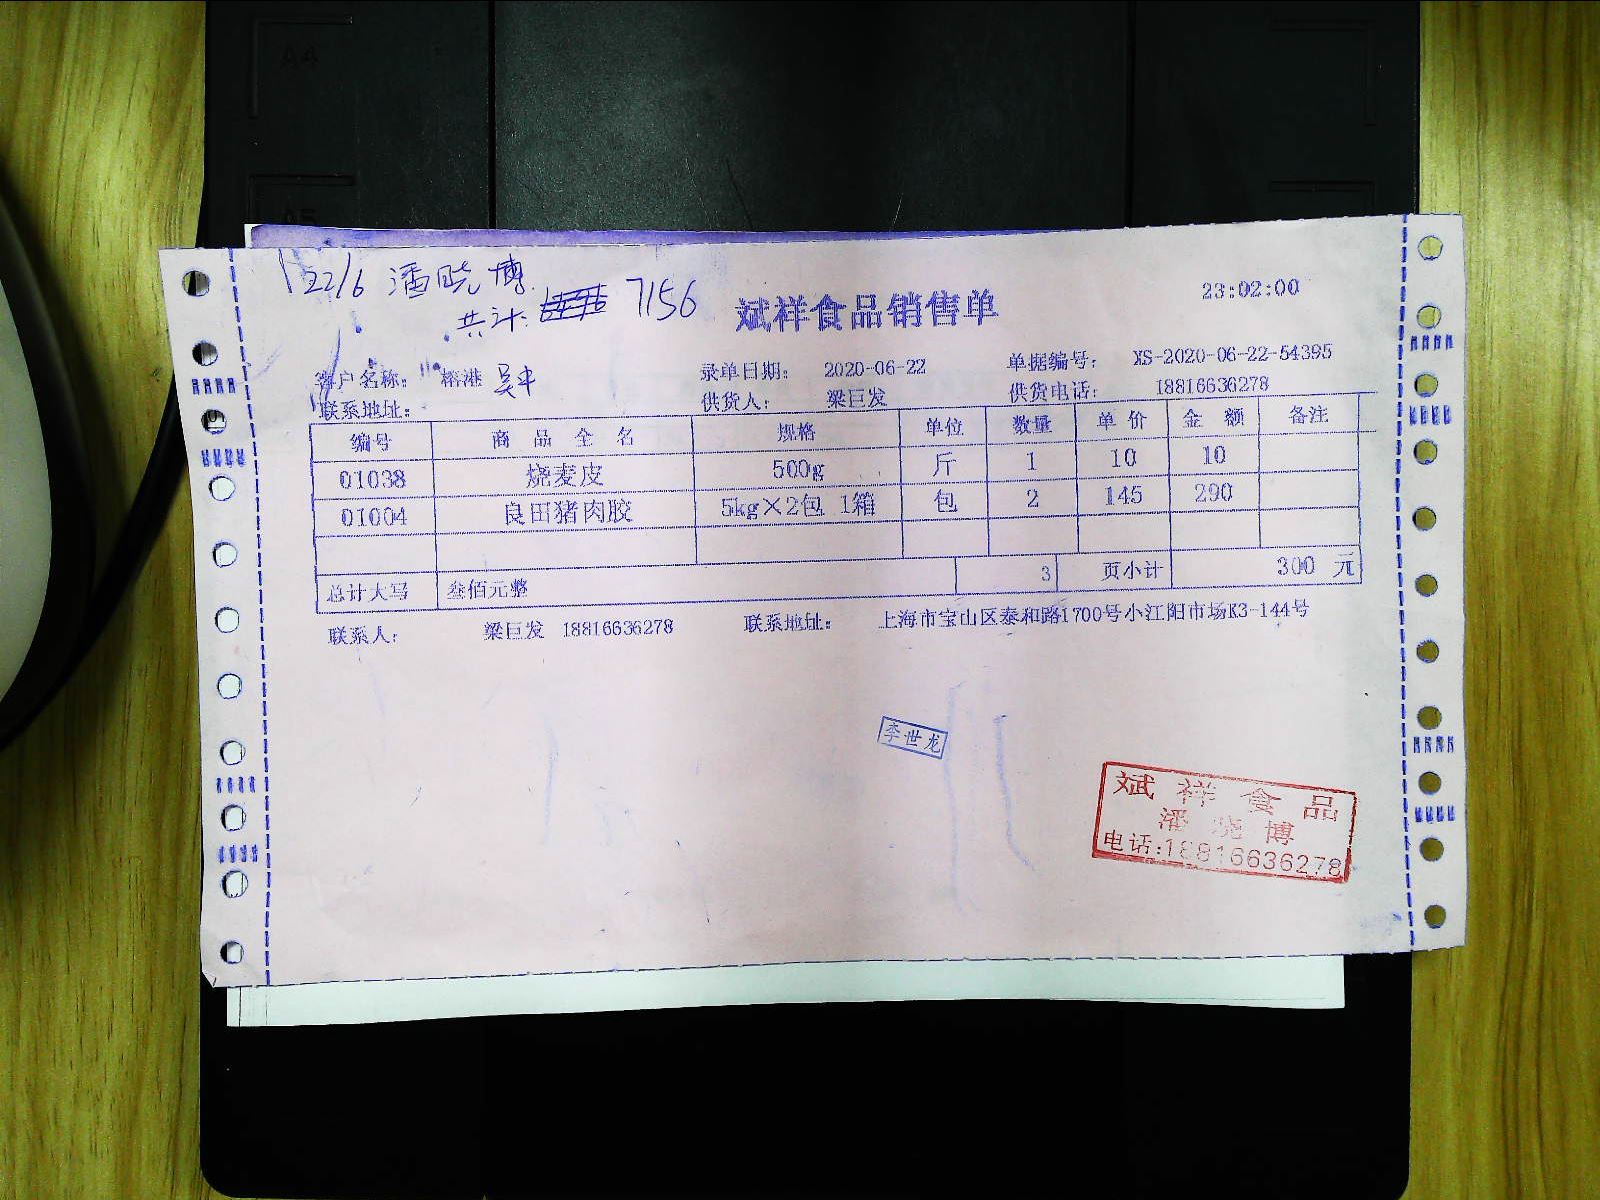 A4
A5
22/6 潘晓博
共计: 7156
斌祥食品销售单
23:02:00
客户名称: 榕港 吴中 录单日期: 2020-06-22 单据编号: XS-2020-06-22-54395
联系地址: 供货人: 梁巨发 供货电话: 18816636278
编号 商品全名 规格 单位 数量 单价 金额 备注
01038 烧麦皮 500g 斤 1 10 10
01004 良田猪肉胶 5kg×2包 1箱 包 2 145 290
总计大写 叁佰元整 3 页小计 300 元
联系人: 梁巨发 18816636278 联系地址: 上海市宝山区泰和路1700号小江阳市场K3-144号
李世龙
斌祥食品
潘晓博
电话:18816636278